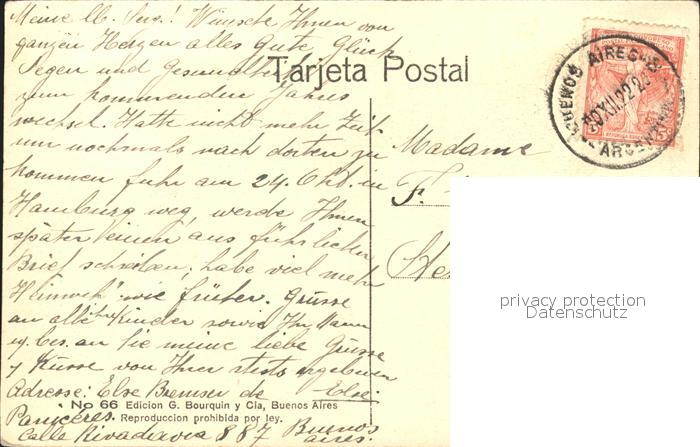 Meine lb. Sus.! Wünsche Ihnen von
ganzen Herzen alles Gute Glück
Segen und Gesundheit
Tarjeta Postal
zum kommenden Jahres
wechsel. Hatte nicht mehr Zeit
um nochmals nach dorten zu
kommen fuhr am 24. Okt. in
Hamburg weg, werde Ihnen
später einen ausführlichen
Brief schreiben, habe viel mehr
Heimweh wie früher. Grüsse
an alle Kinder sowie Ihr Mann
u. bes. an Sie meine liebe Grüsse
y Küsse von Ihrer stets ergebenen
Else
Adresse: Else Bremser de
Paniceres.
Calle Rivadavia 887 Buenos
aires.
No 66 Edicion G. Bourquin y Cia, Buenos Aires
Reproduccion prohibida por ley.
Madame
F.
BUENOS AIRES
ARGENTINA
privacy protection
Datenschutz